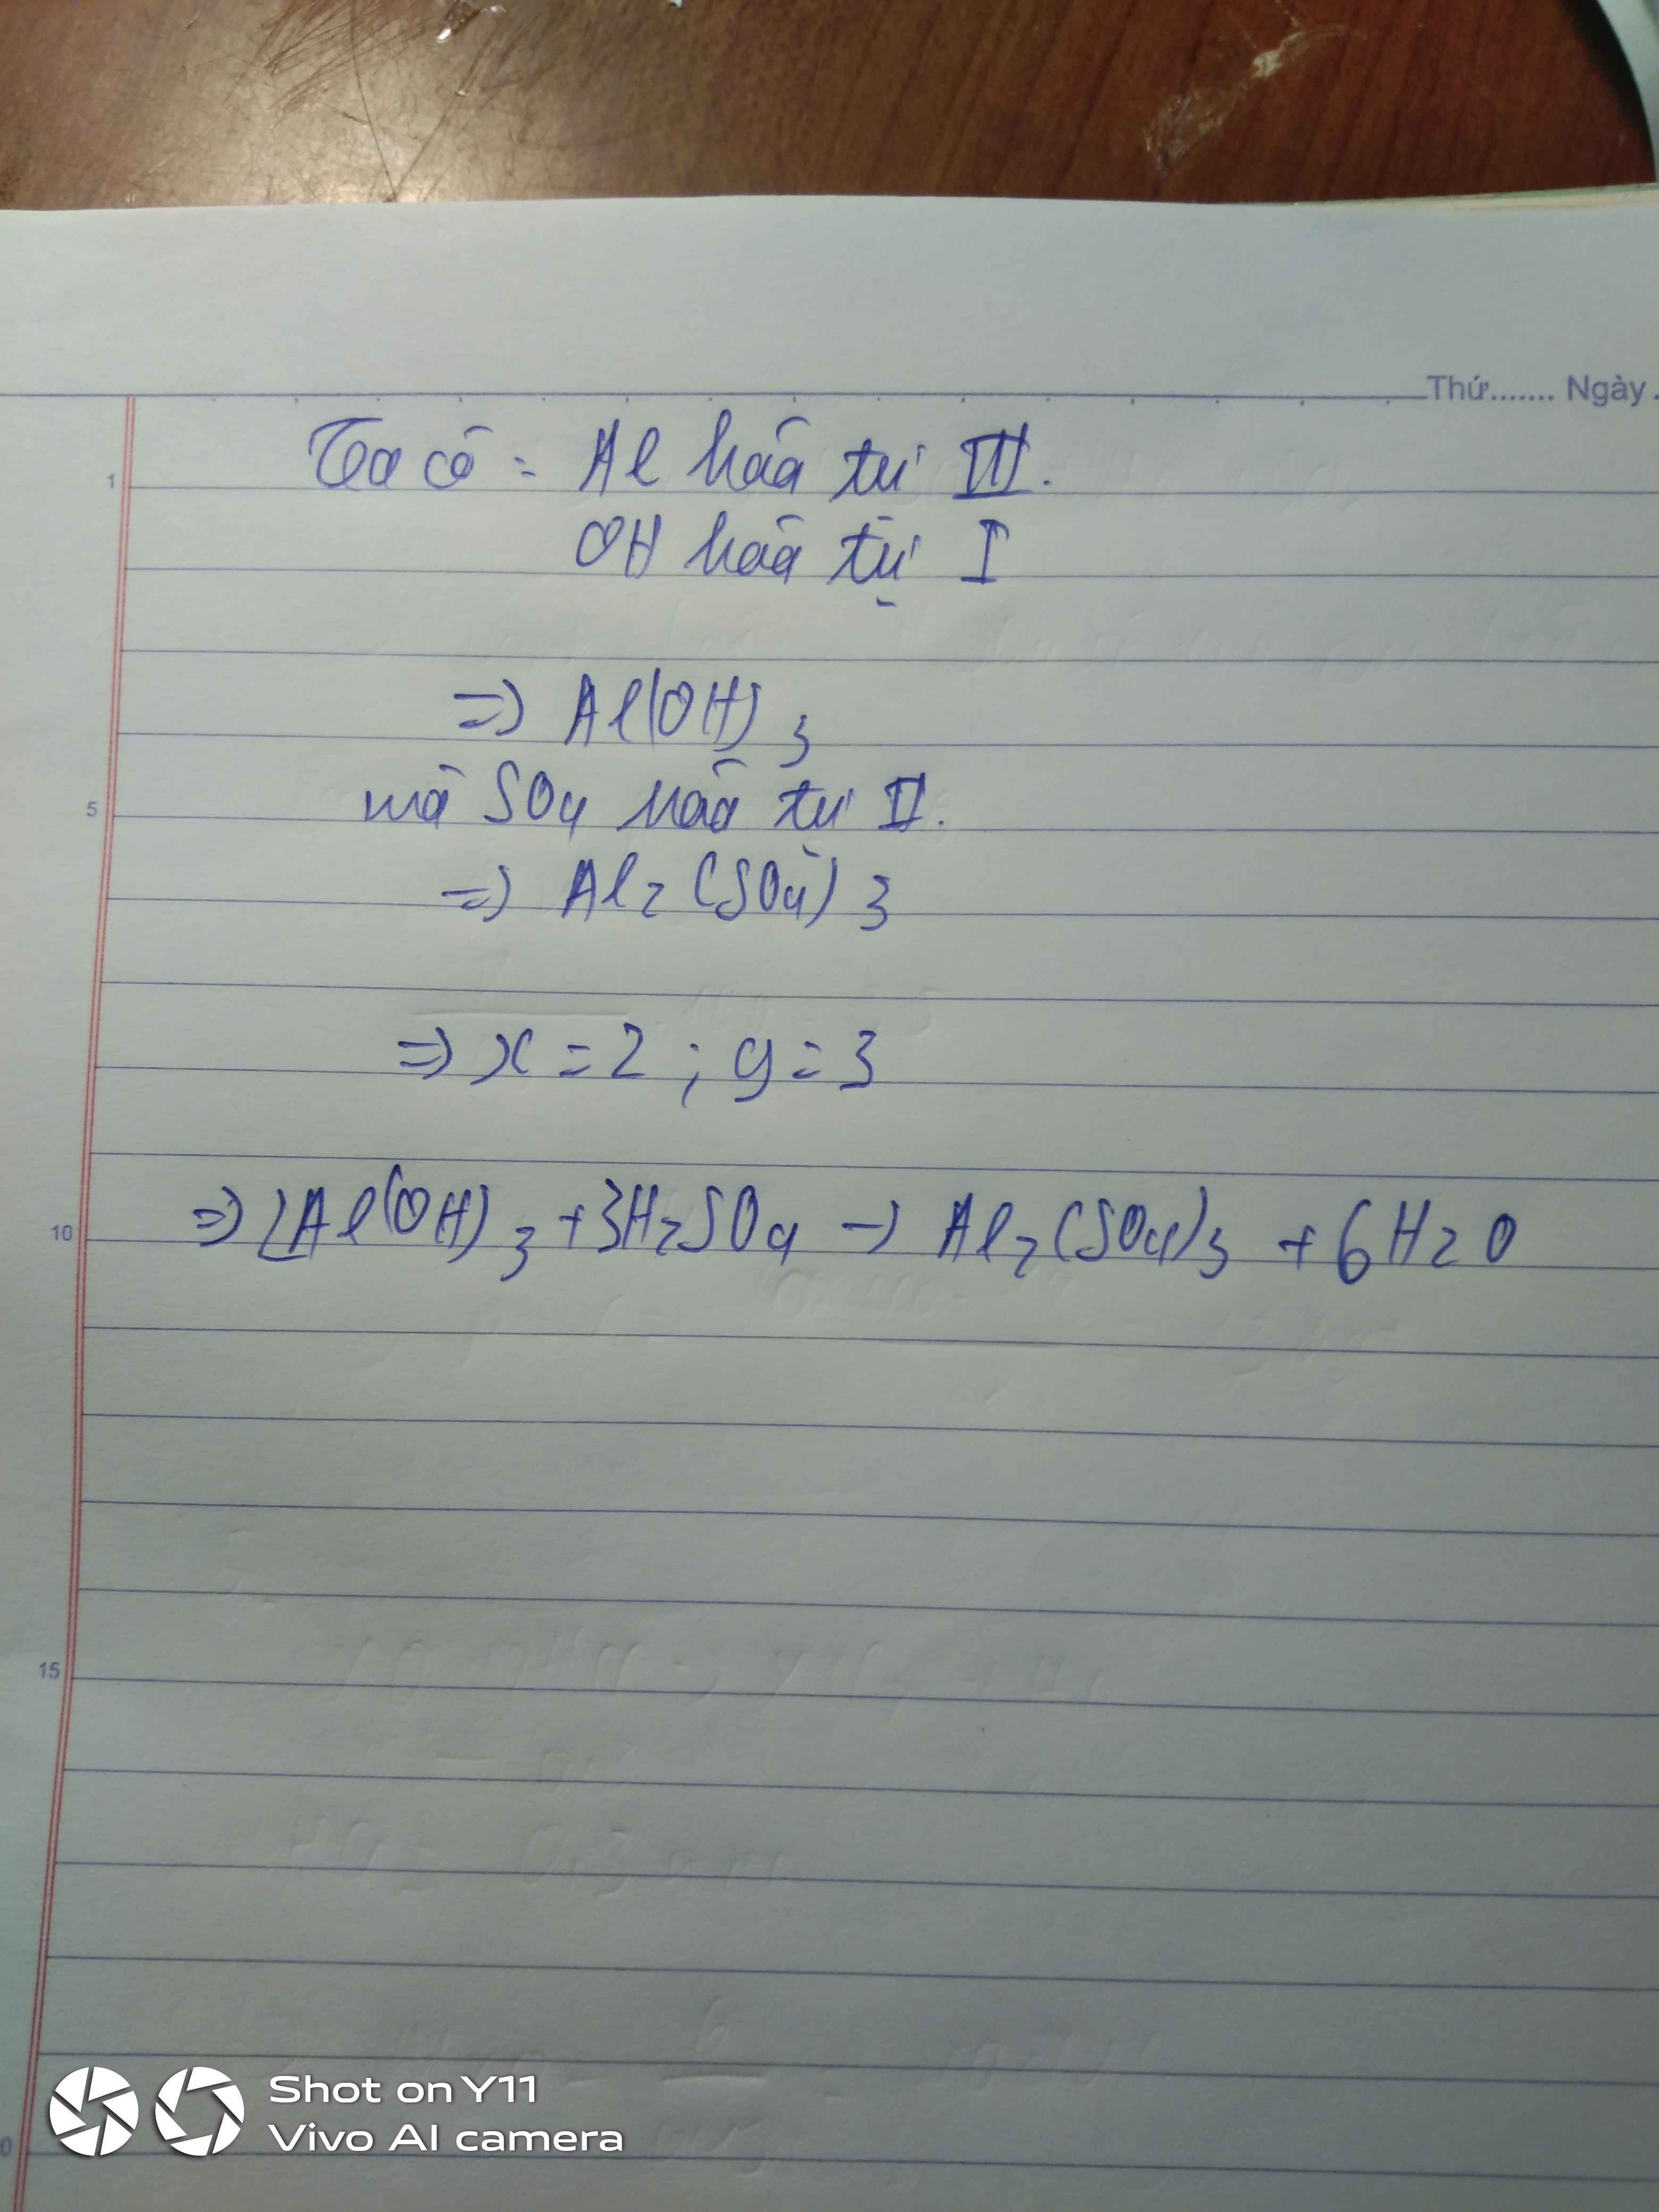 Thứ....... Ngày.
1
Ta có : Al hóa trị III.
OH hóa trị I
=) Al(OH)3
5
mà SO4 hóa trị II.
=) Al2(SO4)3
=) x = 2 ; y = 3
10
=) 2Al(OH)3 + 3H2SO4 -) Al2(SO4)3 + 6H2O
15
0
Shot on Y11
Vivo AI camera